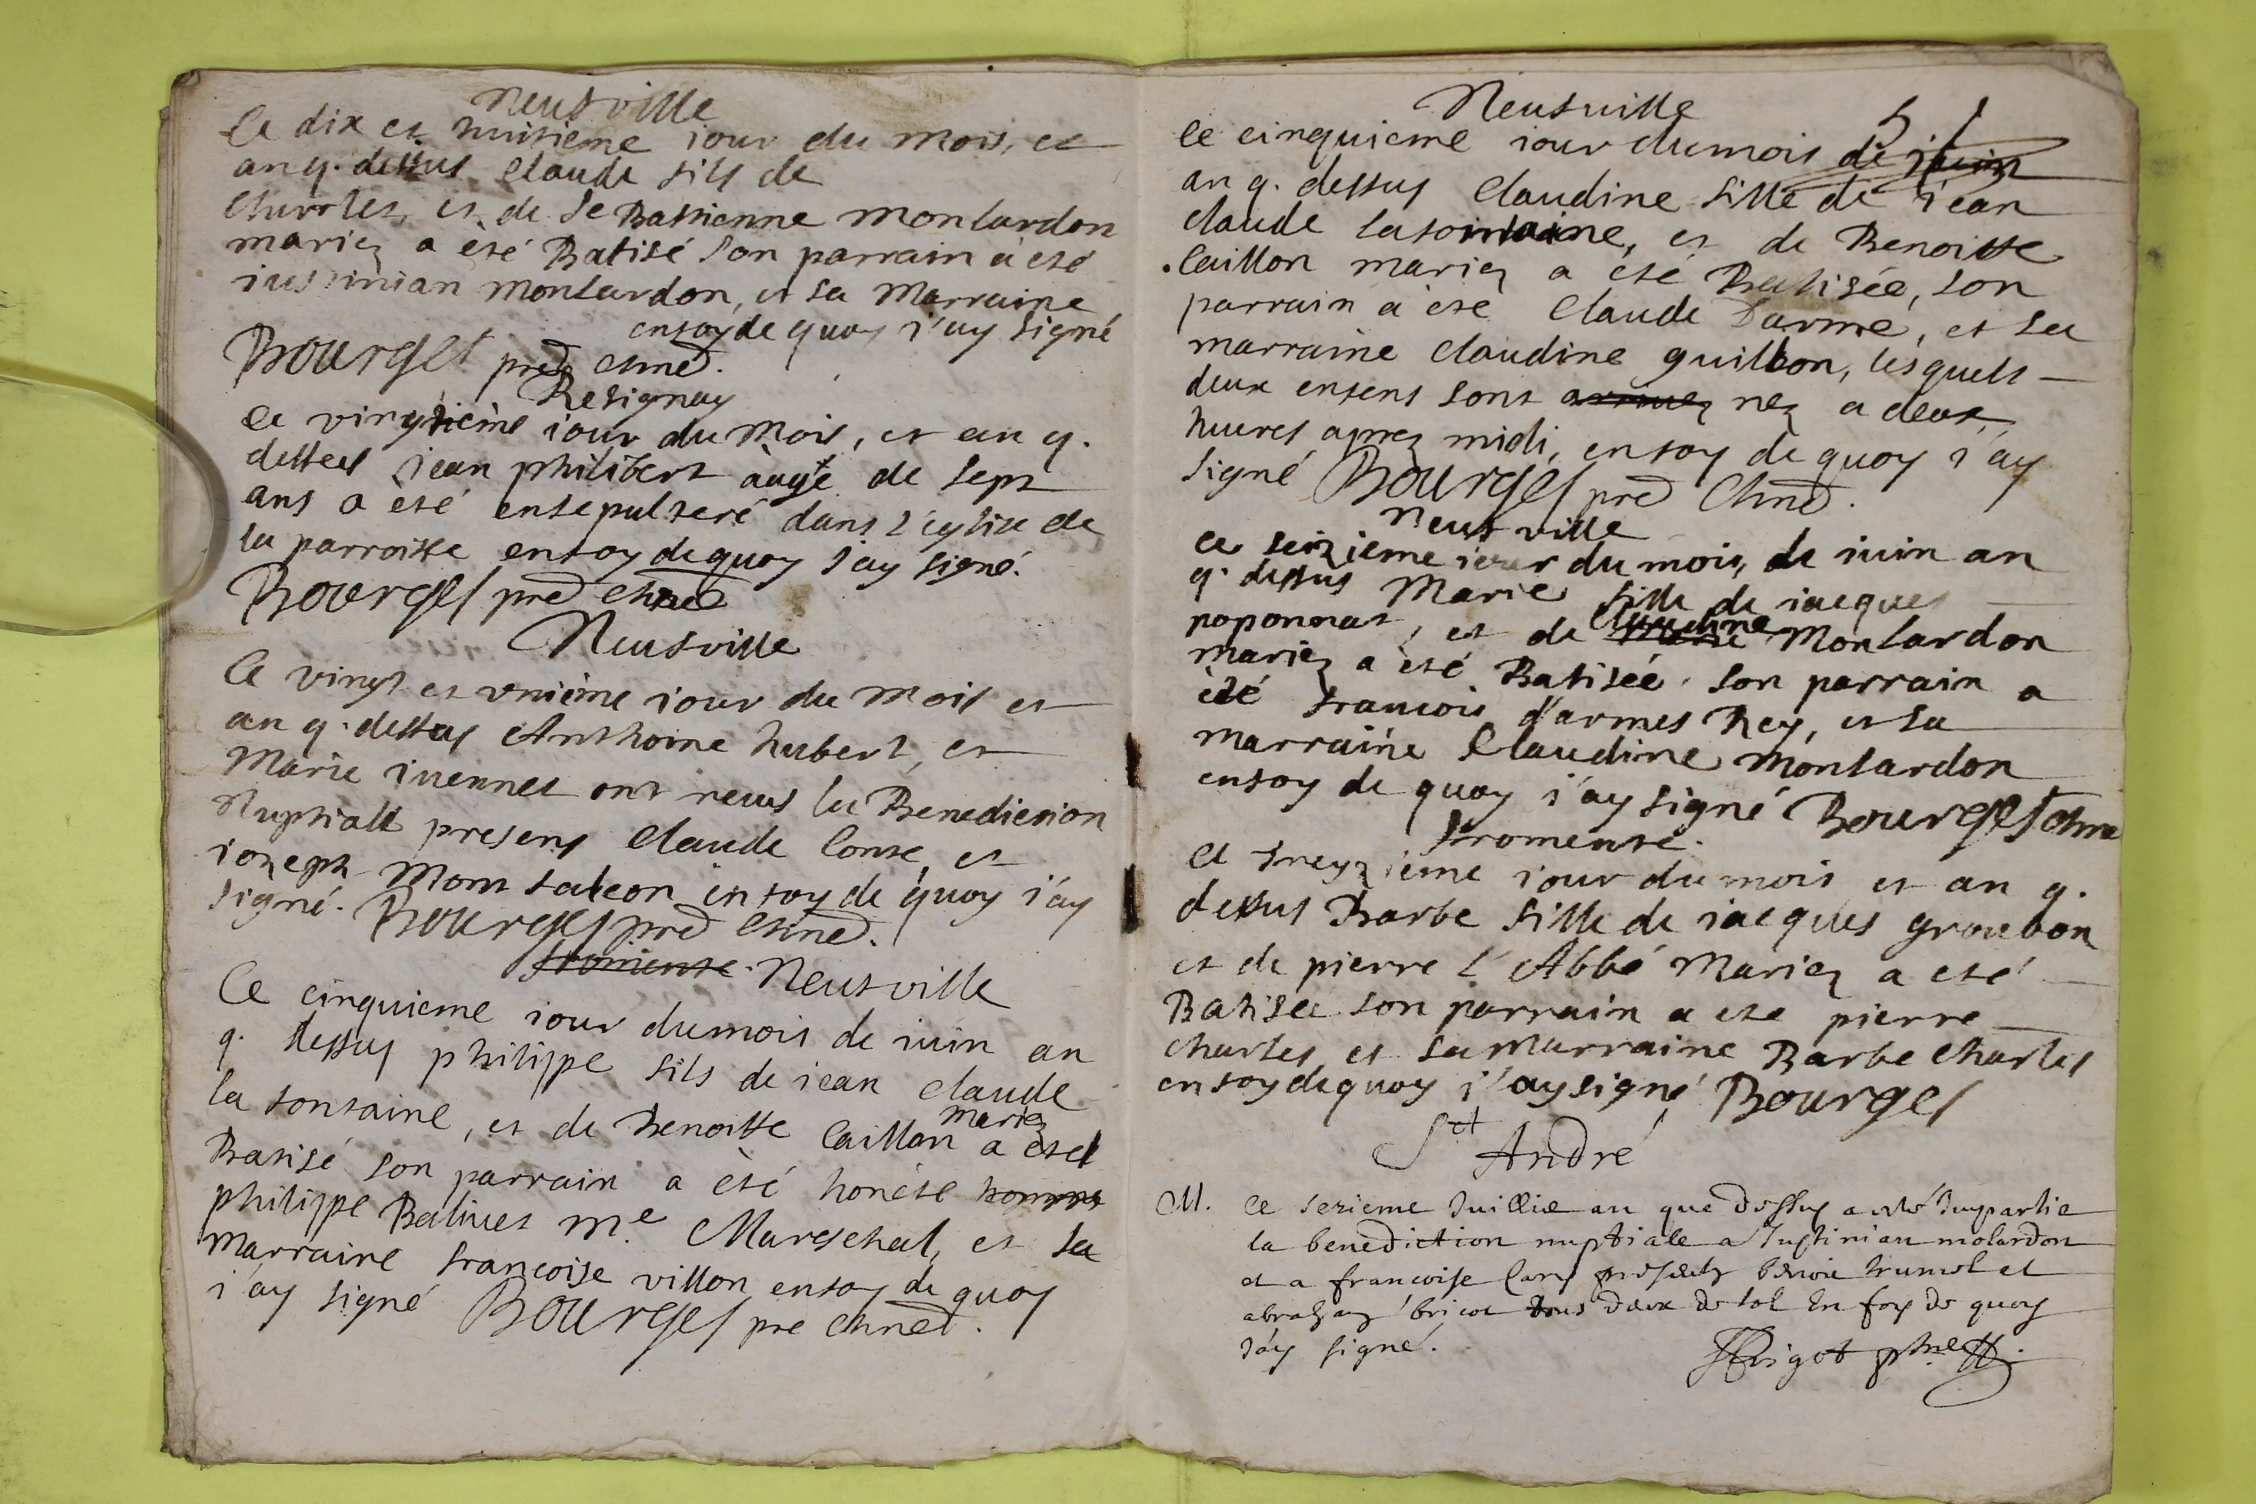 Neufville
Ce dix et huitieme iour du mois, et
an q. dessus Claude fils de
Charles, et de Sebastienne Montardon
mariez a èté Batisé son parrain a èté
iustinian montardon, et sa Marraine
en foy de quoy i'ay signé
Bourget pred
Resignay
Ce vingtième iour du Mois, et an q.
dessus jean philibert àagé de sept
ans a èté ensepulteré dans l'eglise de
la parroisse en foy de quoy i'ay signé.
Bourget pred
Neufville
Ce vingt et unième iour du Mois et
an q. dessus Anthoine hubert, et
Marie iuennet ont receus la Benediction
Nuptiall presens Claude Conte, et
iozeph en foy de quoy i'ay
signé. Bourget pred
fromente. Neufville
Ce cinquieme iour du mois de iuin an
q. dessus philippe fils de iean claude
la fontaine, et de Benoitte Caillon mariez a èté
Batisé son parrain a èté honète homme
philippe Balivet me. Mareschal, et sa
marraine francoise villon en foy de quoy
i'ay signé Bourget pre
Neufville
51
Ce cinquieme iour du mois de iuin
an q. dessus Claudine fille de iean
claude lafontaine, et de Benoitte
Caillon mariez a èté Batisée, son
parrain a èté Claude Darme, et sa
marraine Claudine guillon, lesquels
deux enfens sont nez a deux
heures aprez midi, en foy de quoy i'ay
signé Bourget pred
Neufville
Ce seizieme iour du mois, de iuin an
q. dessus Marie fille de iacques
poponnat, et de Claudine Montardon
mariez a èté Batisée. son parrain a
èté francois d'armes Rey, et sa
marraine Claudine Montardon
en foy de quoy i'ay signé Bourget
fromente.
Ce treyzieme iour du mois et an q.
dessus Barbe fille de iacques groubon
et de pierre l'Abbé Mariez a eté
Batisée son parrain a ete pierre
Charles, et sa marraine Barbe Charles
en foy de quoy i'ay signé Bourget
St André
M. Ce sezieme Juillie an que dessus a esté Impartie
la benediction nuptiale a Justinian molardon
et a francoise presents benoi et
bricot tous deux de En foy de quoy
J'ay signé. Rigot